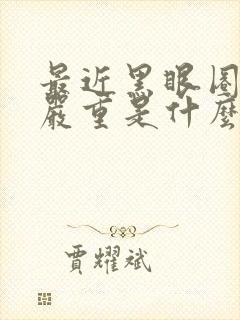 最近黑眼圈
嚴重是什麼
賈耀斌